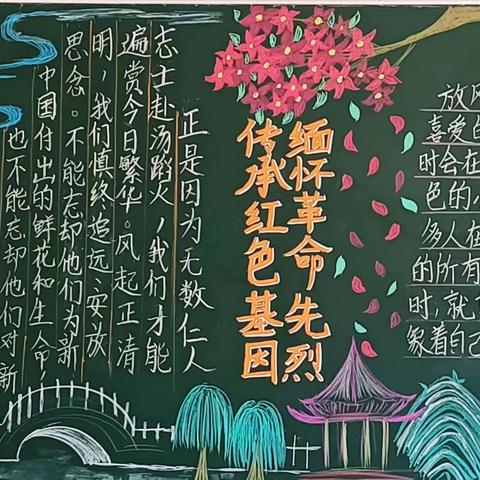 缅怀革命先烈
传承红色基因
正是因为无数仁人
志士赴汤蹈火,我们才能
遍赏今日繁华。风起正清
明,我们慎终追远,安放
思念。不能忘却他们为新
中国付出的鲜花和生命,
也不能忘却他们对新
放风
喜爱的
时会在
色的小
多人在
的所有
时,就
象着自己